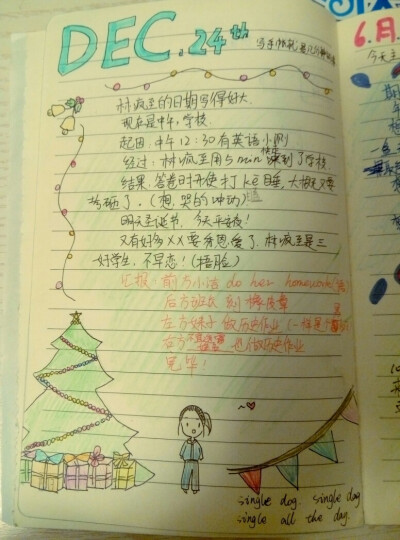 DEC. 24th
写手帐就
林疯王的日期写得好大.
现在是中午,学校.
起因:中午12:30有英语小测
经过:林疯王用5min 来到了学校
结果:答卷时开使打ke睡,大概又要
考砸了.(想哭的冲动)
明天圣诞节,今天平安夜!
又有好多XX要秀恩爱了.林疯王是三
好学生,不早恋!(捂脸)
汇报:前方小洁 do her homework
后方班长 刻橡皮章
左方妹子 做历史作业(一样是个
右方 也做历史作业
完毕!
single dog. single dog
single all the day.
6.月
今天主